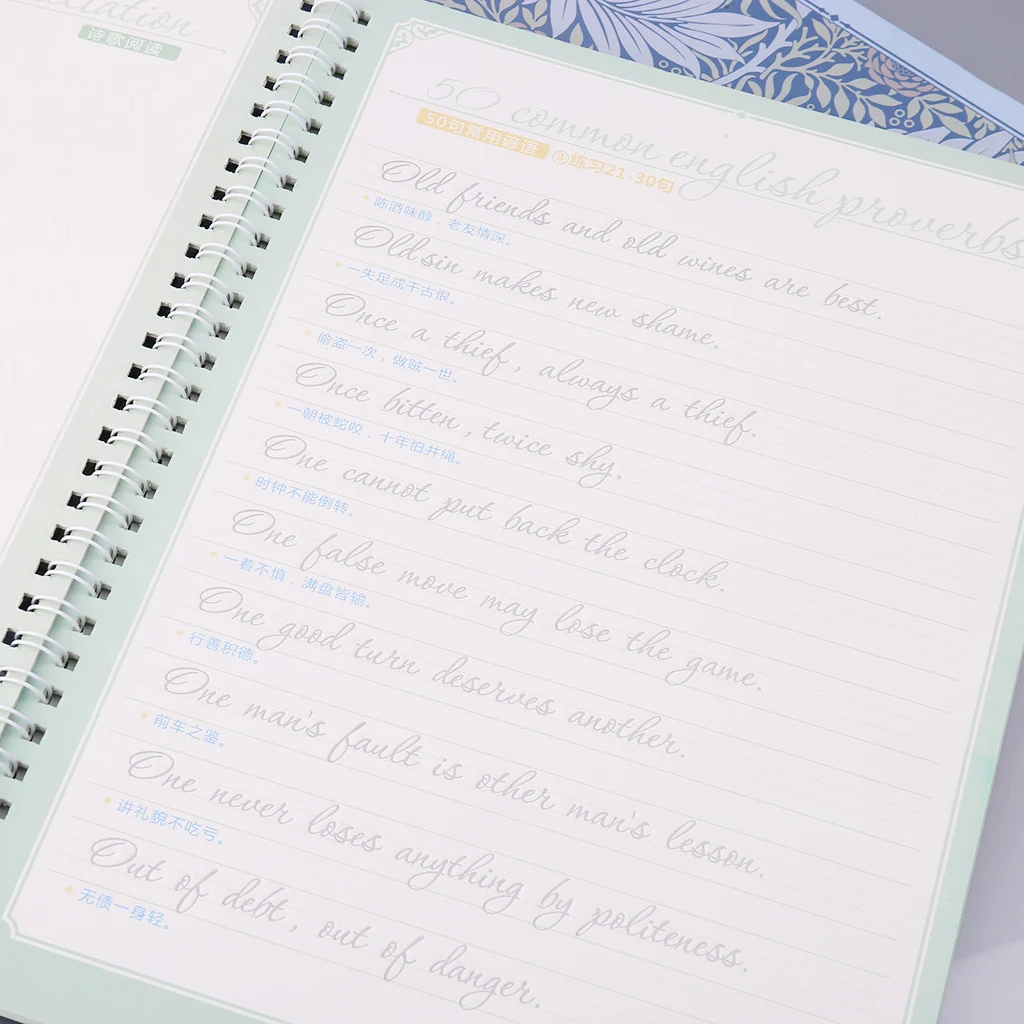 诗歌阅读
50 common english proverbs
50句常用谚语 ③练习21-30句
Old friends and old wines are best.
陈酒味醇，老友情深。
Old sin makes new shame.
一失足成千古恨。
Once a thief, always a thief.
偷盗一次，做贼一世。
Once bitten, twice shy.
一朝被蛇咬，十年怕井绳。
One cannot put back the clock.
时钟不能倒转。
One false move may lose the game.
一着不慎，满盘皆输。
One good turn deserves another.
行善积德。
One man's fault is other man's lesson.
前车之鉴。
One never loses anything by politeness.
讲礼貌不吃亏。
Out of debt, out of danger.
无债一身轻。